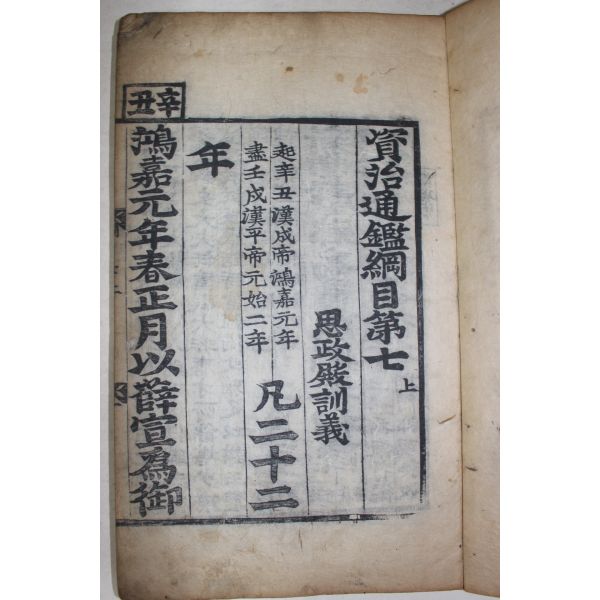 資治通鑑綱目第七上
思政殿訓義
起辛丑漢成帝鴻嘉元年
盡壬戌漢平帝元始二年
凡二十二
年
辛丑
鴻嘉元年春正月以薛宣爲御